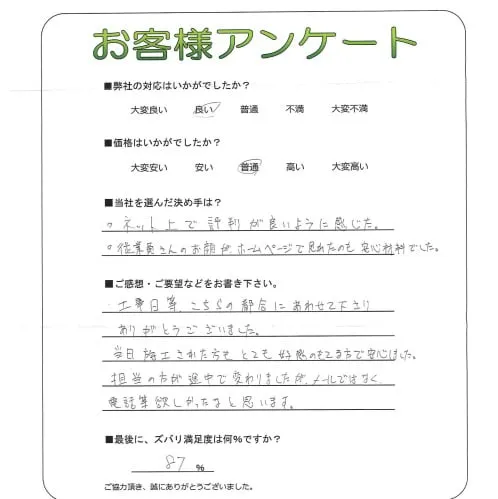 お客様アンケート
■弊社の対応はいかがでしたか？
大変良い 良い 普通 不満 大変不満
■価格はいかがでしたか？
大変安い 安い 普通 高い 大変高い
■当社を選んだ決め手は？
○ ネット上で評判が良いように感じた。
○ 従業員さんのお顔が、ホームページで見れたのも安心材料でした。
■ご感想・ご要望などをお書き下さい。
土曜日等、こちらの都合にあわせて下さり
ありがとうございました。
当日施工された方も とても好感のもてる方で安心しました。
担当の方が途中で変わりましたが、メールではなく、
電話等欲しかったなと思います。
■最後に、ズバリ満足度は何%ですか？
87 %
ご協力頂き、誠にありがとうございました。